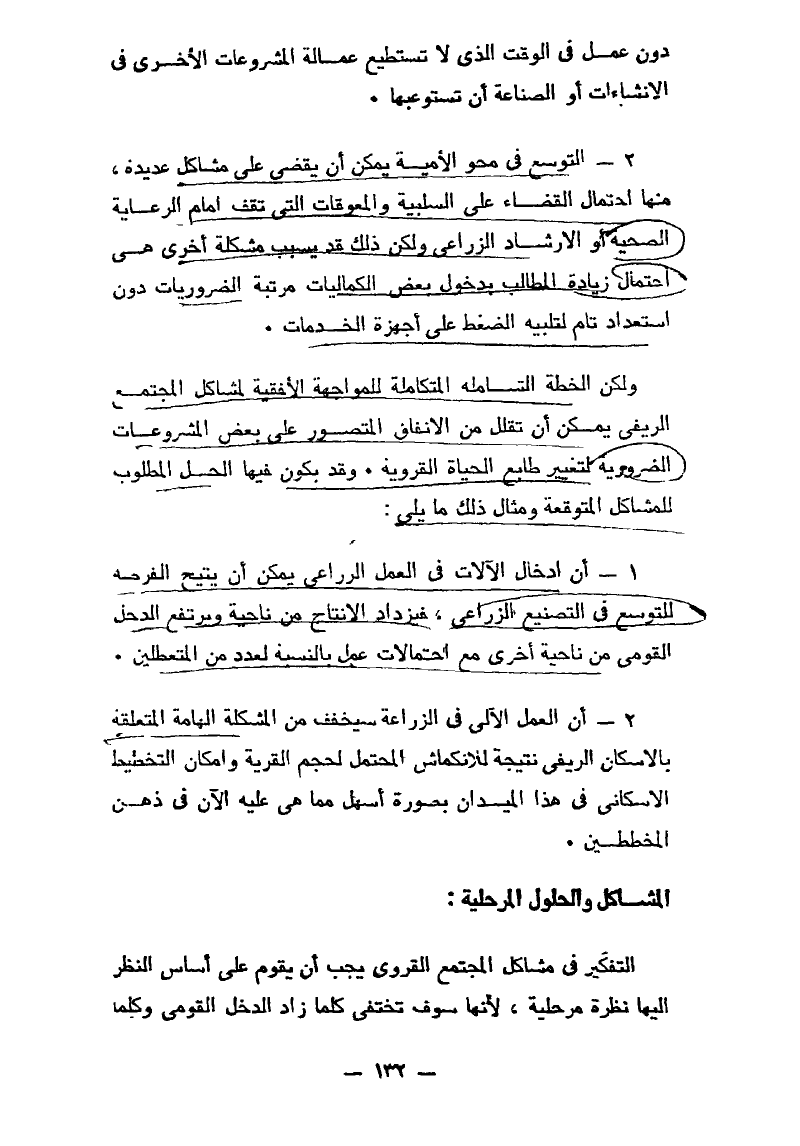 دون عمل فى الوقت الذى لا تستطيع عمالة المشروعات الأخرى فى
الانشاءات أو الصناعة أن تستوعبها .
٢ — التوسع فى محو الأمية يمكن أن يقضي على مشاكل عديدة ،
منها احتمال القضاء على السلبية والمعوقات التى تقف امام الرعاية
الصحية أو الارشاد الزراعى ولكن ذلك قد يسبب مشكلة أخرى هى
احتمال زيادة المطالب بدخول بعض الكماليات مرتبة الضروريات دون
استعداد تام لتلبيه الضغط على أجهزة الخدمات .
ولكن الخطة الشامله المتكاملة للمواجهة الأفقية لمشاكل المجتمع
الريفى يمكن أن تقلل من الانفاق المتصور على بعض المشروعات
الضرورية لتغيير طابع الحياة القروية . وقد يكون فيها الحل المطلوب
للمشاكل المتوقعة ومثال ذلك ما يلى :
١ — أن ادخال الآلات فى العمل الزراعى يمكن أن يتيح الفرصه
للتوسع فى التصنيع الزراعى ، فيزداد الانتاج من ناحية ويرتفع الدخل
القومى من ناحية أخرى مع احتمالات عمل بالنسبة لعدد من المتعطلين .
٢ — أن العمل الآلى فى الزراعة سيخفف من المشكلة الهامة المتعلقة
بالاسكان الريفى نتيجة للانكماش المحتمل لحجم القرية وامكان التخطيط
الاسكانى فى هذا الميدان بصورة أسهل مما هى عليه الآن فى ذهن
المخططين .
المشاكل والحلول المرحلية :
التفكير فى مشاكل المجتمع القروى يجب أن يقوم على أساس النظر
اليها نظرة مرحلية ، لأنها سوف تختفى كلما زاد الدخل القومى وكلما
— ١٣٢ —